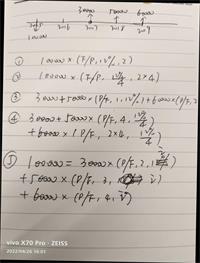 30000 50000 60000
2015 2016 2017 2018 2019
100000
① 100000 × (F/P, 12%, 2)
② 100000 × (F/P, 12%/4, 2×4)
③ 30000 + 50000 × (P/F, 1, 12%) + 60000 × (P/F, 2
④ 30000 + 50000 × (P/F, 4, 12%/4)
+ 60000 × (P/F, 2×4, 12%/4)
⑤ 100000 = 30000 × (P/F, 2, i)
+ 50000 × (P/F, 3, i)
+ 60000 × (P/F, 4, i)
vivo X70 Pro · ZEISS
2022/04/26 16:01